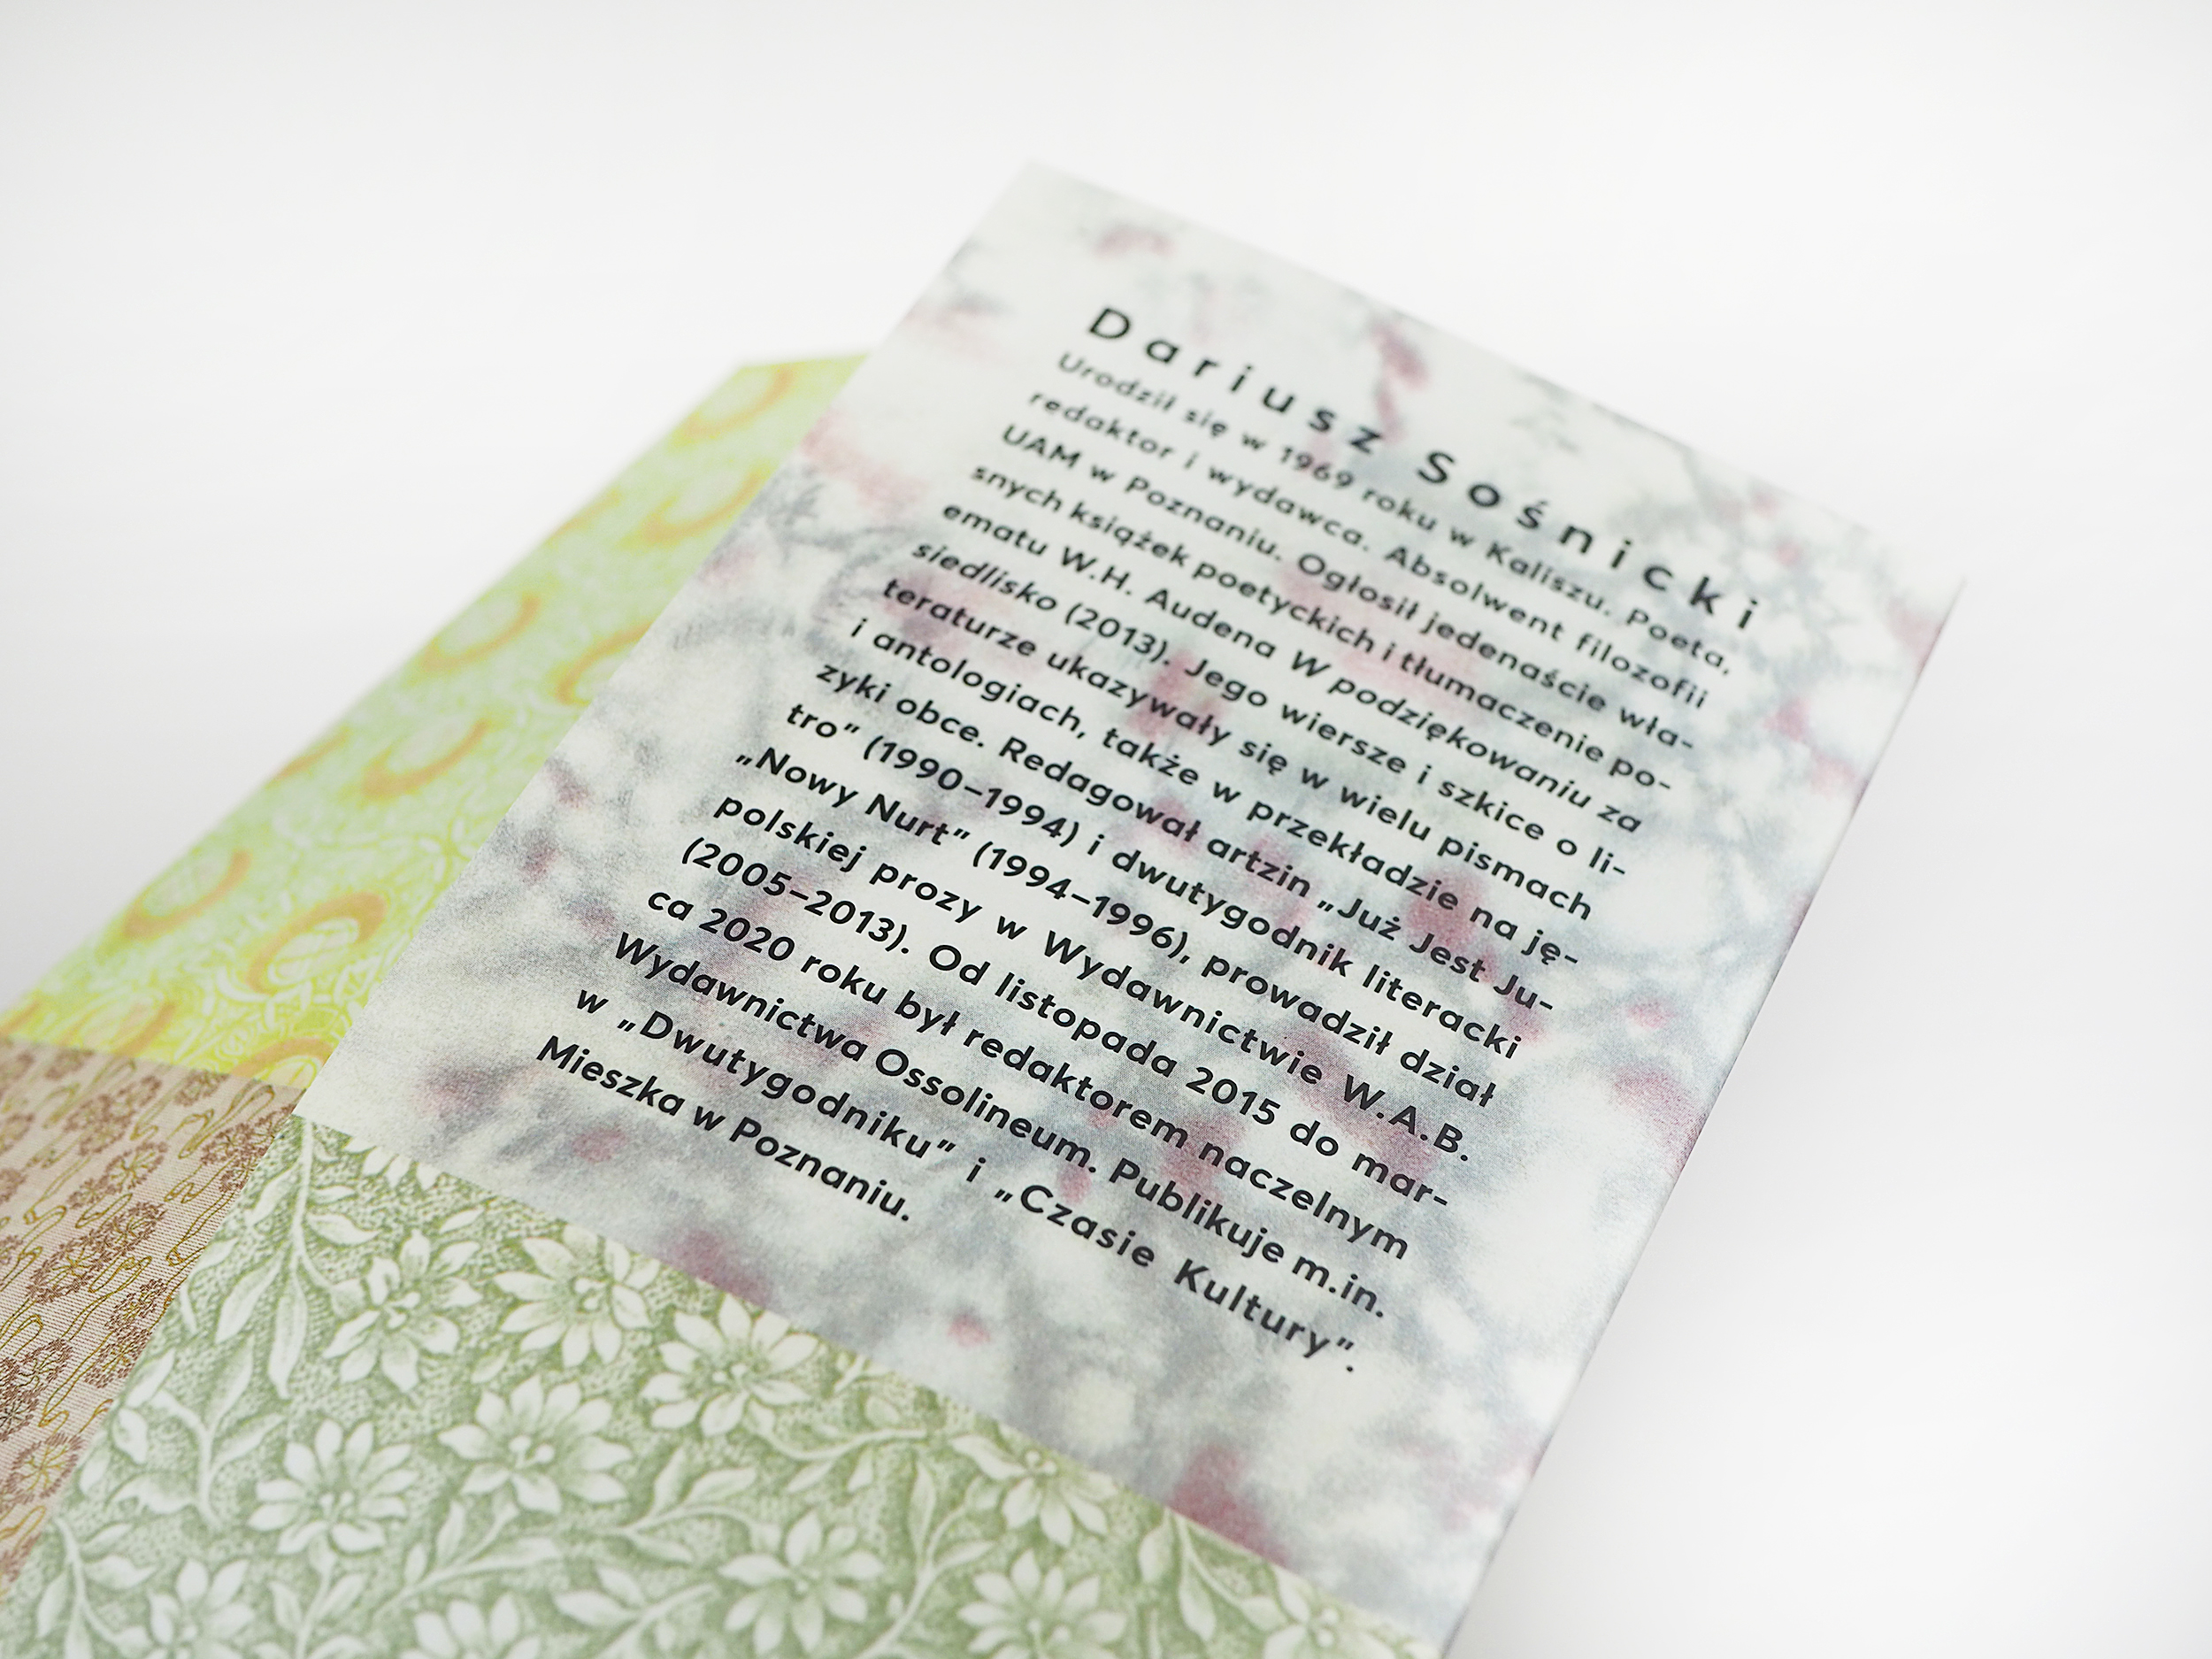 Dariusz Sośnicki
Urodził się w 1969 roku w Kaliszu. Poeta,
redaktor i wydawca. Absolwent filozofii
UAM w Poznaniu. Ogłosił jedenaście wła-
snych książek poetyckich i tłumaczenie po-
ematu W.H. Audena W podziękowaniu za
siedlisko (2013). Jego wiersze i szkice o li-
teraturze ukazywały się w wielu pismach
i antologiach, także w przekładzie na ję-
zyki obce. Redagował artzin „Już Jest Ju-
tro” (1990–1994) i dwutygodnik literacki
„Nowy Nurt” (1994–1996), prowadził dział
polskiej prozy w Wydawnictwie W.A.B.
(2005–2013). Od listopada 2015 do mar-
ca 2020 roku był redaktorem naczelnym
Wydawnictwa Ossolineum. Publikuje m.in.
w „Dwutygodniku” i „Czasie Kultury”.
Mieszka w Poznaniu.